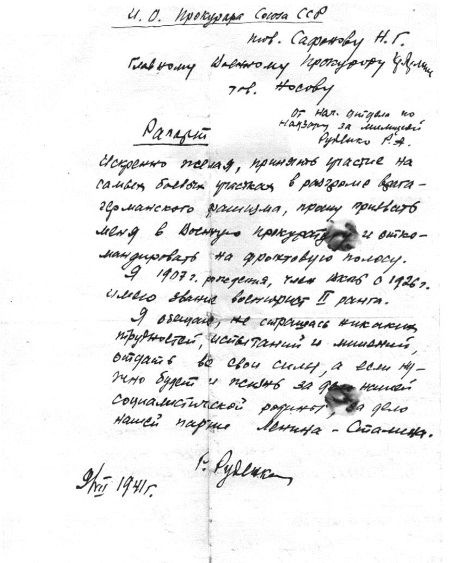 И. О. Прокурора Союза ССР
тов. Сафонову Н. Г.
Главному Военному Прокурору
тов. Носову
От нач. отдела по
надзору за милицией
Руденко Р. А.
Рапорт
Искренно желая, принять участие на
самых боевых участках в разгроме врага -
германского фашизма, прошу призвать
меня в военную прокуратуру и отко-
мандировать на фронтовую полосу.
Я 1907 г. рождения, член ВКПб с 1926 г.
имею звание военюрист II ранга.
Я обещаю, не страшась никаких
трудностей, испытаний и лишений,
отдать все свои силы, а если ну-
жно будет и жизнь за дело нашей
социалистической родины, за дело
нашей партии Ленина - Сталина.
Р. Руденко
9/VII 1941 г.